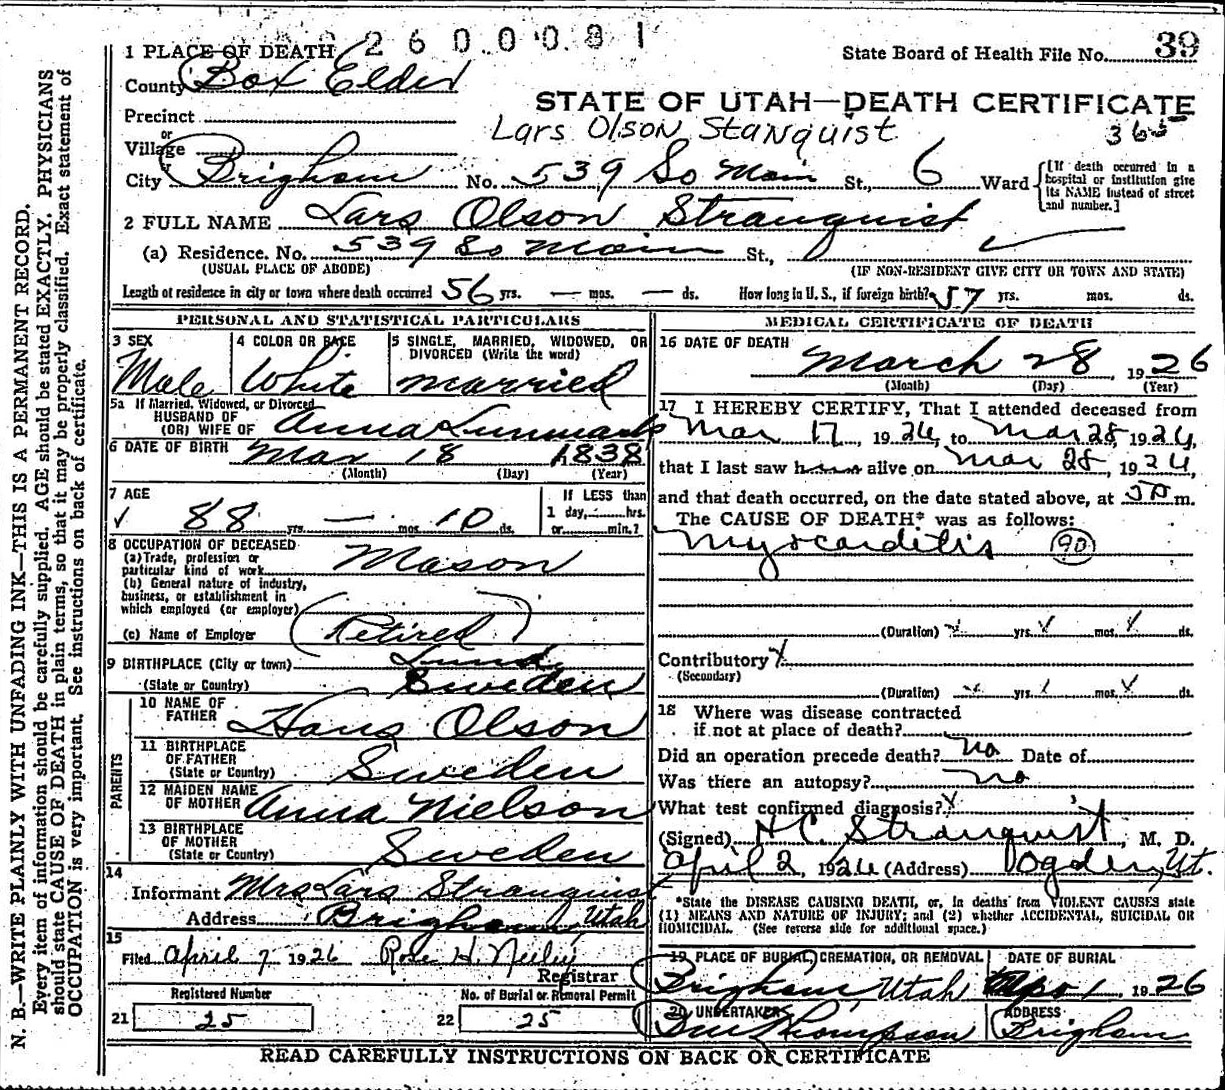 2600081
State Board of Health File No. 39
1 PLACE OF DEATH
County Box Elder
STATE OF UTAH—DEATH CERTIFICATE
Precinct
Lars Olson Stanquist
365
or
Village
or
City Brigham No. 539 So Main St., 6 Ward
[If death occurred in a hospital or institution give its NAME instead of street and number.]
2 FULL NAME Lars Olson Stranquist
(a) Residence. No. 539 So Main St.,
(USUAL PLACE OF ABODE) (IF NON-RESIDENT GIVE CITY OR TOWN AND STATE)
Length of residence in city or town where death occurred 56 yrs. — mos. — ds. How long in U. S., if foreign birth? 57 yrs. mos. ds.
PERSONAL AND STATISTICAL PARTICULARS
3 SEX Male
4 COLOR OR RACE White
5 SINGLE, MARRIED, WIDOWED, OR DIVORCED (Write the word) married
5a If Married, Widowed, or Divorced
HUSBAND OF
(OR) WIFE OF Anna
6 DATE OF BIRTH Mar 18 1838
(Month) (Day) (Year)
7 AGE
88 yrs. — mos. 10 ds.
If LESS than
1 day, hrs.
or min.?
8 OCCUPATION OF DECEASED
(a) Trade, profession or
particular kind of work Mason
(b) General nature of industry,
business, or establishment in
which employed (or employer)
(c) Name of Employer (Retired)
9 BIRTHPLACE (City or town) Lund
(State or Country) Sweden
PARENTS
10 NAME OF FATHER Hans Olson
11 BIRTHPLACE OF FATHER
(State or Country) Sweden
12 MAIDEN NAME OF MOTHER Anna Nielson
13 BIRTHPLACE OF MOTHER
(State or Country) Sweden
14
Informant Mrs Lars Stranquist
Address Brigham, Utah
15
Filed April 7 1926 Rose H. Neeley
Registrar
Registered Number No. of Burial or Removal Permit
21 25 22 25
MEDICAL CERTIFICATE OF DEATH
16 DATE OF DEATH
March 28 1926
(Month) (Day) (Year)
17 I HEREBY CERTIFY, That I attended deceased from
Mar 17, 1926, to Mar 28, 1926,
that I last saw him alive on Mar 28, 1926,
and that death occurred, on the date stated above, at m.
The CAUSE OF DEATH* was as follows:
Myocarditis 90
(Duration) yrs. mos. ds.
Contributory
(Secondary)
(Duration) yrs. mos. ds.
18 Where was disease contracted
if not at place of death?
Did an operation precede death? no Date of
Was there an autopsy? no
What test confirmed diagnosis?
(Signed) H C. Stranquist, M. D.
April 2, 1926 (Address) Ogden, Ut.
*State the DISEASE CAUSING DEATH, or, in deaths from VIOLENT CAUSES state
(1) MEANS AND NATURE OF INJURY; and (2) whether ACCIDENTAL, SUICIDAL OR
HOMICIDAL. (See reverse side for additional space.)
19 PLACE OF BURIAL, CREMATION, OR REMOVAL DATE OF BURIAL
Brigham Utah Apr 1 1926
20 UNDERTAKER ADDRESS
Thompson Brigham
READ CAREFULLY INSTRUCTIONS ON BACK OF CERTIFICATE
N. B.—WRITE PLAINLY WITH UNFADING INK—THIS IS A PERMANENT RECORD.
Every item of information should be carefully supplied. AGE should be stated EXACTLY. PHYSICIANS
should state CAUSE OF DEATH in plain terms, so that it may be properly classified. Exact statement of
OCCUPATION is very important. See instructions on back of certificate.